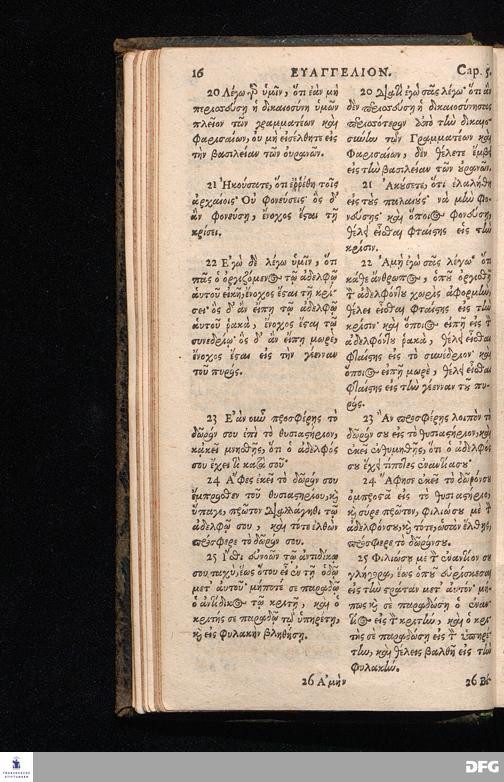 16 ΕΥΑΓΓΕΛΙΟΝ. Cap. 5.
20 Λέγω γὸ ὑμῖν, ὅτι ἐὰν μὴ
περισσεύσῃ ἡ δικαιοσύνη ὑμῶν
πλεῖον τῶν γραμματέων καὶ
Φαρισαίων, οὐ μὴ εἰσέλθητε εἰς
τὴν βασιλείαν τῶν οὐρανῶν.
21 Ἠκούσατε, ὅτι ἐῤῥέθη τοῖς
ἀρχαίοις· Οὐ φονεύσεις· ὃς δ'
ἂν φονεύσῃ, ἔνοχος ἔσται τῇ
κρίσει.
22 Ἐγὼ δὲ λέγω ὑμῖν, ὅτι
πᾶς ὁ ὀργιζόμενος τῷ ἀδελφῷ
αὐτοῦ εἰκῆ, ἔνοχος ἔσται τῇ κρί-
σει· ὃς δ' ἂν εἴπῃ τῷ ἀδελφῷ
αὐτοῦ ῥακὰ, ἔνοχος ἔσται τῷ
συνεδρίῳ· ὃς δ' ἂν εἴπῃ μωρὲ,
ἔνοχος ἔσται εἰς τὴν γέενναν
τοῦ πυρός.
23 Ἐὰν οὖν προσφέρῃς τὸ
δῶρόν σου ἐπὶ τὸ θυσιαστήριον,
κἀκεῖ μνησθῇς, ὅτι ὁ ἀδελφός
σου ἔχει τὶ κατὰ σοῦ·
24 Ἄφες ἐκεῖ τὸ δῶρόν σου
ἔμπροσθεν τοῦ θυσιαστηρίου, καὶ
ὕπαγε, πρῶτον διαλλάγηθι τῷ
ἀδελφῷ σου, καὶ τότε ἐλθὼν
πρόσφερε τὸ δῶρόν σου.
25 Ἴσθι εὐνοῶν τῷ ἀντιδίκῳ
σου ταχὺ, ἕως ὅτου εἶ ἐν τῇ ὁδῷ
μετ' αὐτοῦ· μήποτέ σε παραδῷ
ὁ ἀντίδικος τῷ κριτῇ, καὶ ὁ
κριτής σε παραδῷ τῷ ὑπηρέτῃ,
καὶ εἰς φυλακὴν βληθήσῃ.
26 Ἀμὴν
20 Διατὶ ἐγὼ σᾶς λέγω· ὅτι ἂν
δὲν περισσεύσῃ ἡ δικαιοσύνησας
περισσότερον ἀπὸ τὴν δικαιο-
σύνην τῶν Γραμματέων καὶ
Φαρισαίων, δὲν θέλετε ἔμβῃ
εἰς τὴν βασιλείαν τῶν οὐρανῶν.
21 Ἀκούσετε, ὅτι ἐλαλήθη
εἰς τοὺς παλαιούς· νὰ μὴν φο-
νεύσῃς· καὶ ὅποιος φονεύσῃ,
θέλει εἶσθαι φταίστης εἰς τὴν
κρίσιν.
22 Ἀμὴ ἐγὼ σᾶς λέγω· ὅτι
κάθε ἄνθρωπος, ὁποῦ ὀργισθῇ
τὸν ἀδελφόντου χωρὶς ἀφορμὴν,
θέλει εἶσθαι φταίστης εἰς τὴν
κρίσιν· καὶ ὅποιος εἴπῃ εἰς τὸν
ἀδελφόντου ῥακὰ, θέλει εἶσθαι
φταίστης εἰς τὸ συνέδριον· καὶ
ὅποιος εἴπῃ μωρὲ, θέλει εἶσθαι
φταίστης εἰς τὴν γέενναν τοῦ πυ-
ρός.
23 Ἂν προσφέρῃς λοιπὸν τὸ
δῶρόν σου εἰς τὸ θυσιαστήριον, καὶ
ἐκεῖ ἐνθυμηθῇς, ὅτι ὁ ἀδελφός
σου ἔχει τίποτες ἐναντίασου·
24 Ἄφησε ἐκεῖ τὸ δῶρόνσου
ὀμπροστὰ εἰς τὸ θυσιαστήριον,
καὶ σύρε πρῶτον, φιλιώσου μὲ τὸν
ἀδελφόνσου, καὶ τότε, ὡσὰν ἔλθῃς,
πρόσφερε τὸ δῶρόνσου.
25 Φιλιώσου μὲ τὸν ἐναντίον σου
γλήγορα, ἕως ὁποῦ εὑρίσκεσαι
εἰς τὴν στράταν μετ' αὐτόν· μή-
πως καὶ σὲ παραδώσῃ ὁ ἐναν-
τίος εἰς τὸν κριτὴν, καὶ ὁ κρι-
τὴς σὲ παραδώσῃ εἰς τὸν ὑπηρέ-
την, καὶ θέλεις βαλθῆ εἰς τὴν
φυλακήν.
DFG